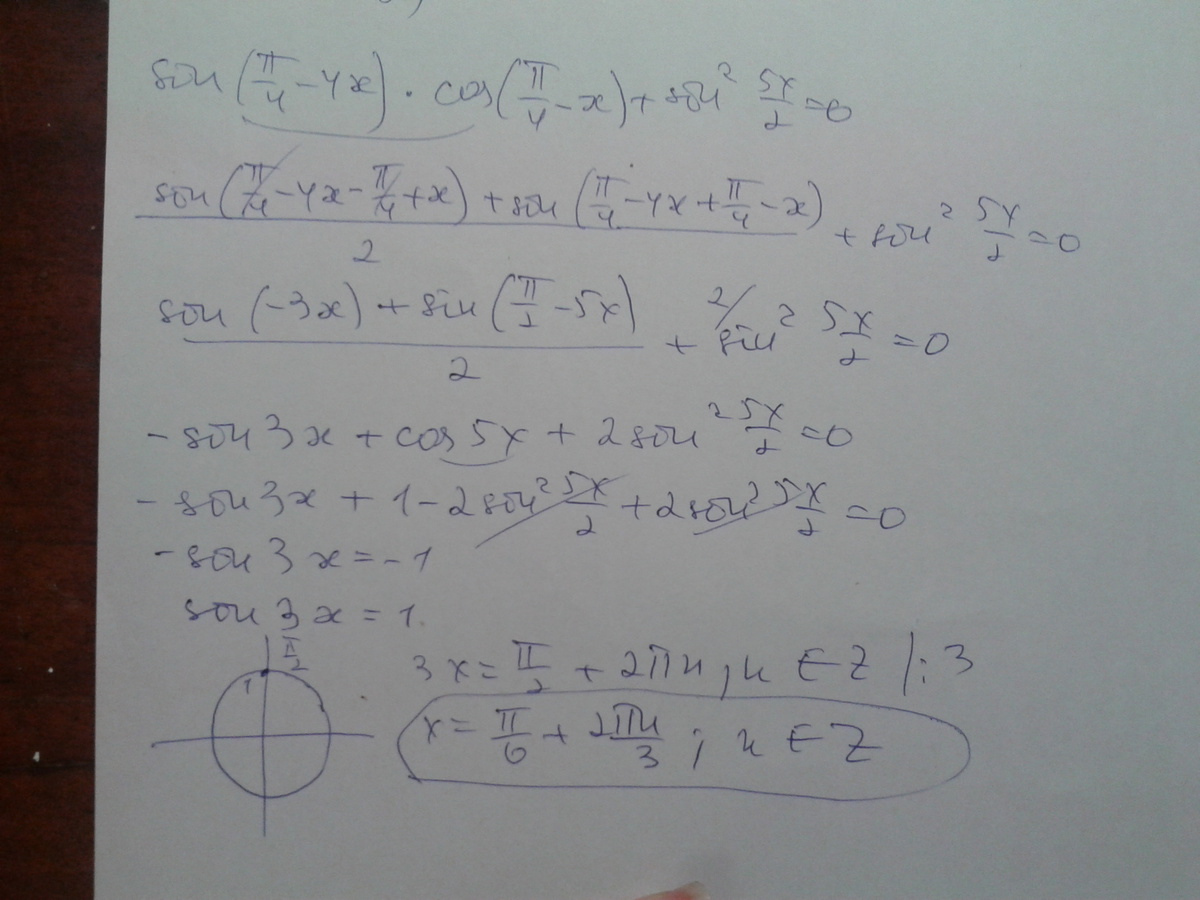 sin(π/4 - 4x) · cos(π/4 - x) + sin² 5x/2 = 0
(sin(π/4 - 4x - π/4 + x) + sin(π/4 - 4x + π/4 - x))/2 + sin² 5x/2 = 0
(sin(-3x) + sin(π/2 - 5x))/2 + 2/ sin² 5x/2 = 0
- sin 3x + cos 5x + 2 sin² 5x/2 = 0
- sin 3x + 1 - 2 sin² 5x/2 + 2 sin² 5x/2 = 0
- sin 3x = -1
sin 3x = 1.
π/2
1
3x = π/2 + 2πn, n ∈ Z |:3
x = π/6 + 2πn/3 ; n ∈ Z